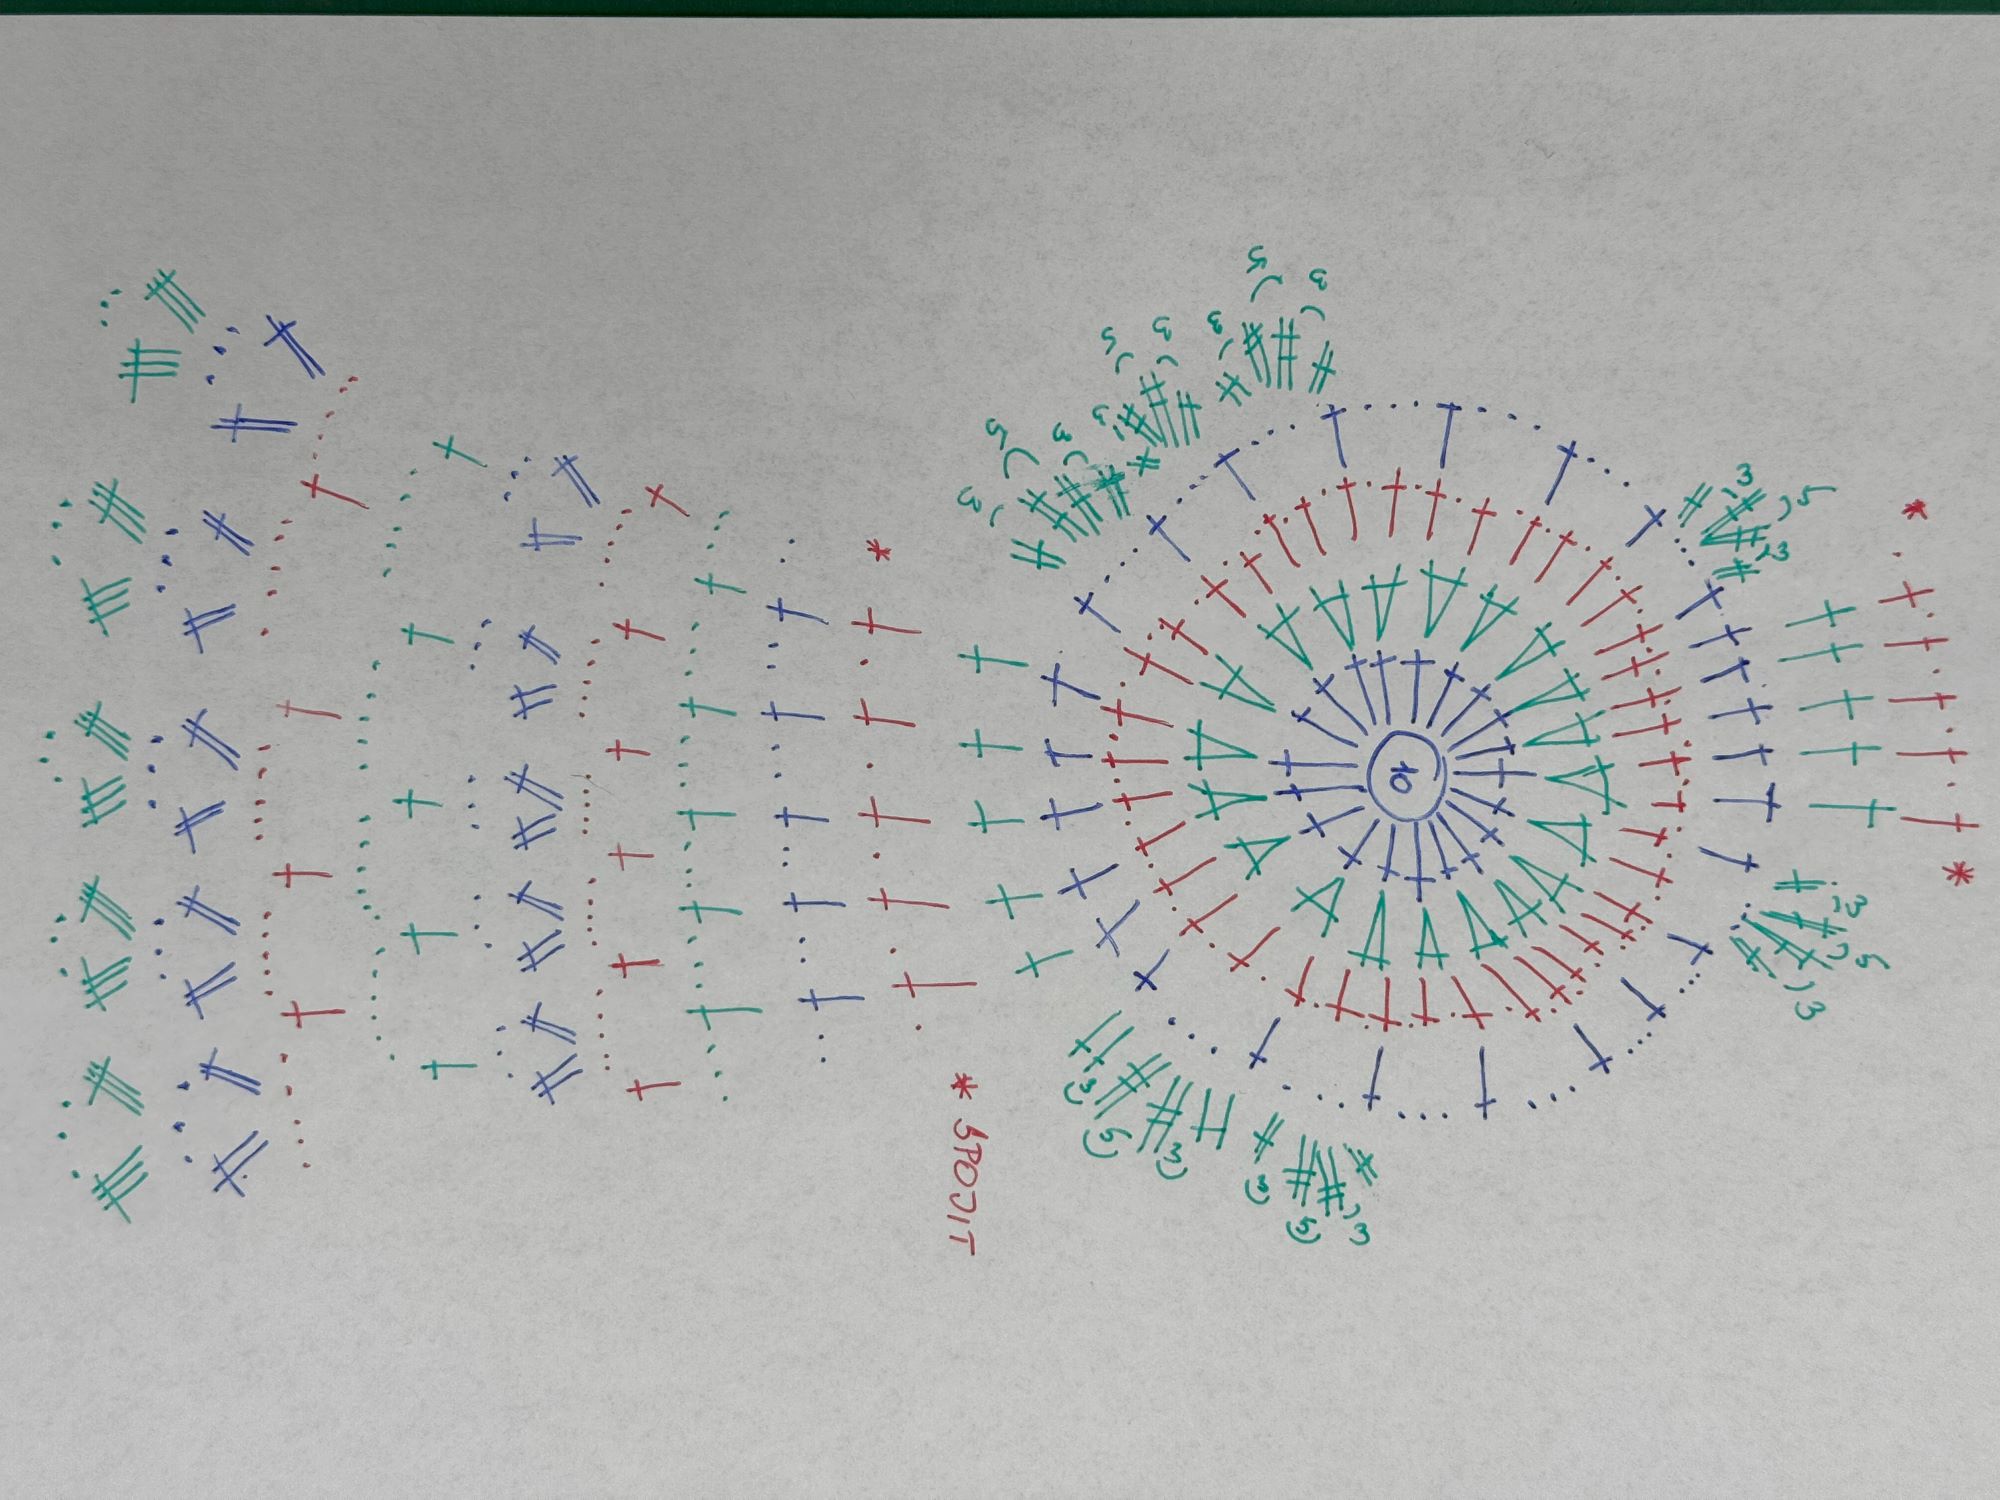 10
3
5
3
3
5
3
3
5
3
3
5
3
3
5
3
3
5
3
3
5
3
* SPOJIT
*
*
*